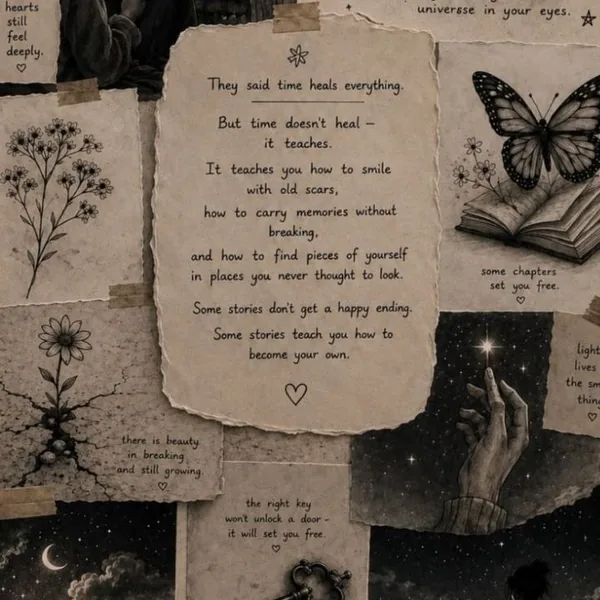 hearts
still
feel
deeply.
universe in your eyes.
They said time heals everything.
But time doesn't heal –
it teaches.
It teaches you how to smile
with old scars,
how to carry memories without
breaking,
and how to find pieces of yourself
in places you never thought to look.
Some stories don't get a happy ending.
Some stories teach you how to
become your own.
some chapters
set you free.
light
lives
the sm
thing
there is beauty
in breaking
and still growing.
the right key
won't unlock a door –
it will set you free.